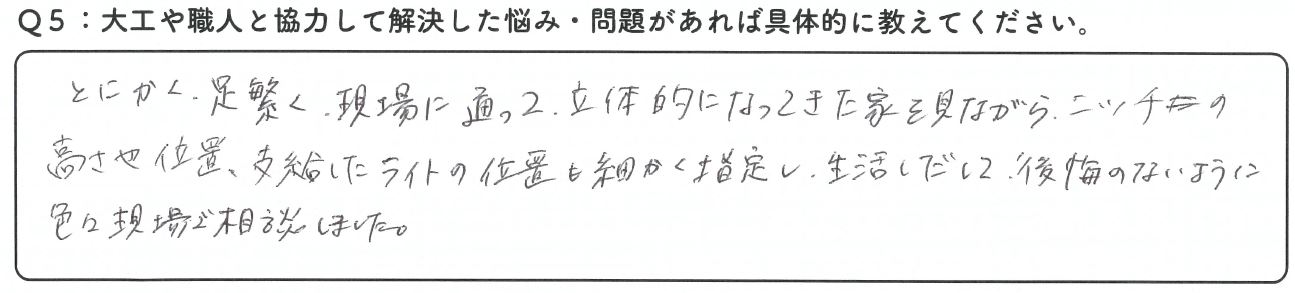 Q5：大工や職人と協力して解決した悩み・問題があれば具体的に教えてください。
とにかく、足繁く、現場に通って、立体的になってきた家を見ながら、ニッチの
高さや位置、支給したライトの位置も細かく指定し、生活しだして、後悔のないように
色々現場で相談しました。